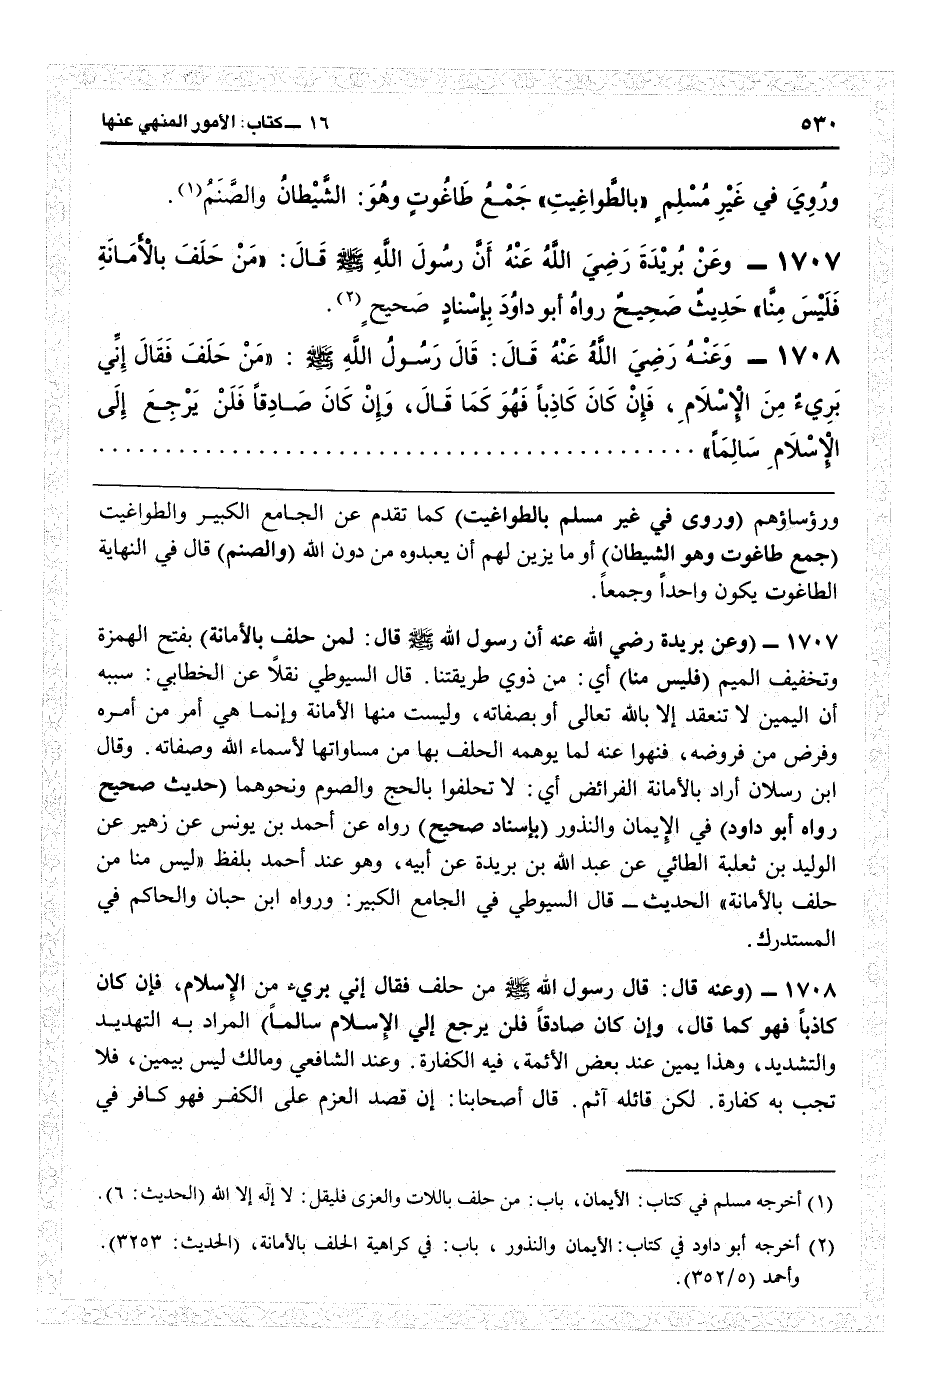 ٥٣٠
١٦ ــ كتاب: الأمور المنهي عنها
ورُوِيَ في غَيْرِ مُسْلِمٍ «بالطَّواغِيتِ» جَمْعُ طَاغُوتٍ وهُوَ: الشَّيْطانُ والصَّنَمُ(١).
١٧٠٧ ــ وعَنْ بُرَيْدَةَ رَضِيَ اللَّهُ عَنْهُ أَنَّ رسُولَ اللَّهِ ﷺ قَالَ: «مَنْ حَلَفَ بالْأَمَانَةِ
فَلَيْسَ مِنَّا» حَدِيثٌ صَحِيحٌ رواهُ أبو داوُدَ بِإسْنادٍ صَحيحٍ(٢).
١٧٠٨ ــ وَعَنْهُ رَضِيَ اللَّهُ عَنْهُ قَالَ: قَالَ رَسُولُ اللَّهِ ﷺ: «مَنْ حَلَفَ فَقَالَ إنِّي
بَرِيءٌ مِنَ الْإِسْلَامِ، فَإِنْ كَانَ كَاذِباً فَهُوَ كَمَا قَالَ، وَإِنْ كَانَ صَادِقاً فَلَنْ يَرْجِعَ إلَى
الْإِسْلَامِ سَالِمَاً» ............................................
ورؤساؤهم (وروى في غير مسلم بالطواغيت) كما تقدم عن الجامع الكبير والطواغيت
(جمع طاغوت وهو الشيطان) أو ما يزين لهم أن يعبدوه من دون الله (والصنم) قال في النهاية
الطاغوت يكون واحداً وجمعاً.
١٧٠٧ ــ (وعن بريدة رضي الله عنه أن رسول الله ﷺ قال: لمن حلف بالأمانة) بفتح الهمزة
وتخفيف الميم (فليس منا) أي: من ذوي طريقتنا. قال السيوطي نقلاً عن الخطابي: سببه
أن اليمين لا تنعقد إلا بالله تعالى أو بصفاته، وليست منها الأمانة وإنما هي أمر من أمره
وفرض من فروضه، فنهوا عنه لما يوهمه الحلف بها من مساواتها لأسماء الله وصفاته. وقال
ابن رسلان أراد بالأمانة الفرائض أي: لا تحلفوا بالحج والصوم ونحوهما (حديث صحيح
رواه أبو داود) في الإيمان والنذور (بإسناد صحيح) رواه عن أحمد بن يونس عن زهير عن
الوليد بن ثعلبة الطائي عن عبد الله بن بريدة عن أبيه، وهو عند أحمد بلفظ «ليس منا من
حلف بالأمانة» الحديث ــ قال السيوطي في الجامع الكبير: ورواه ابن حبان والحاكم في
المستدرك.
١٧٠٨ ــ (وعنه قال: قال رسول الله ﷺ من حلف فقال إني بريء من الإسلام، فإن كان
كاذباً فهو كما قال، وإن كان صادقاً فلن يرجع إلي الإسلام سالماً) المراد به التهديد
والتشديد، وهذا يمين عند بعض الأئمة، فيه الكفارة. وعند الشافعي ومالك ليس بيمين، فلا
تجب به كفارة. لكن قائله آثم. قال أصحابنا: إن قصد العزم على الكفر فهو كافر في
(١) أخرجه مسلم في كتاب: الأيمان، باب: من حلف باللات والعزى فليقل: لا إلٰه إلا الله (الحديث: ٦).
(٢) أخرجه أبو داود في كتاب: الأيمان والنذور، باب: في كراهية الحلف بالأمانة، (الحديث: ٣٢٥٣).
وأحمد (٣٥٢/٥).